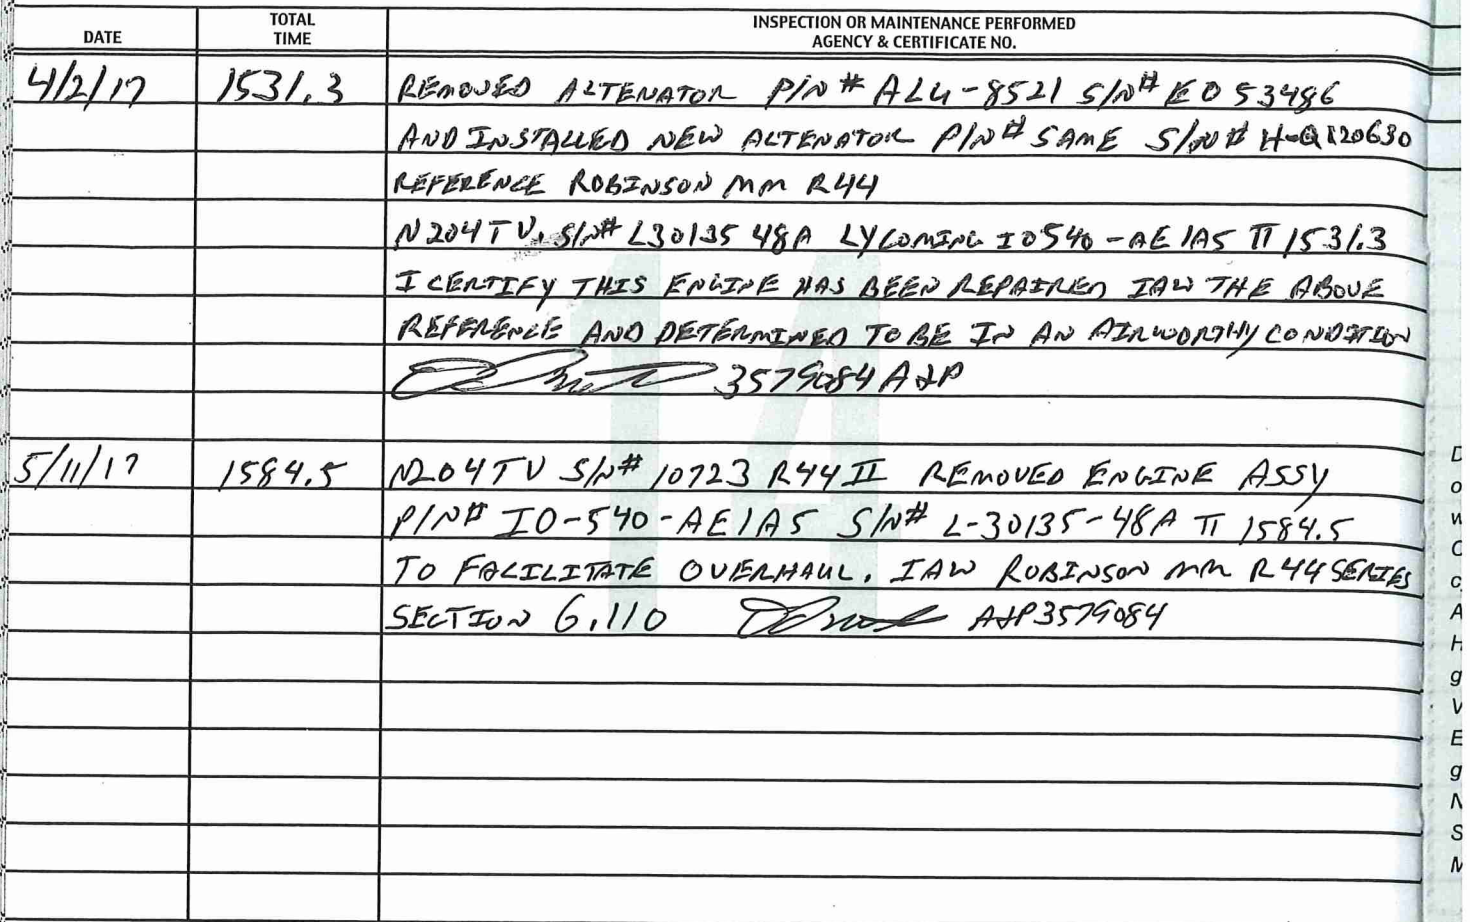 DATE TOTAL TIME INSPECTION OR MAINTENANCE PERFORMED
AGENCY & CERTIFICATE NO.
4/2/17 1531.3 REMOVED ALTENATOR P/N# ALU-8521 S/N# E053486
AND INSTALLED NEW ALTENATOR P/N# SAME S/N# H-Q120630
REFERENCE ROBINSON MM R44
N204TV. S/N# L3013548A LYCOMING IO540-AE1A5 TT 1531.3
I CERTIFY THIS ENGINE HAS BEEN REPAIRED IAW THE ABOVE
REFERENCE AND DETERMINED TO BE IN AN AIRWORTHY CONDITION
3579084 A&P
5/11/17 1584.5 N204TV S/N# 10723 R44 II REMOVED ENGINE ASSY
P/N# IO-540-AE1A5 S/N# L-30135-48A TT 1584.5
TO FACILITATE OVERHAUL. IAW ROBINSON MM R44 SERIES
SECTION 6.110 A&P3579084
14
D
o
w
C
c
A
H
g
V
E
g
N
S
M